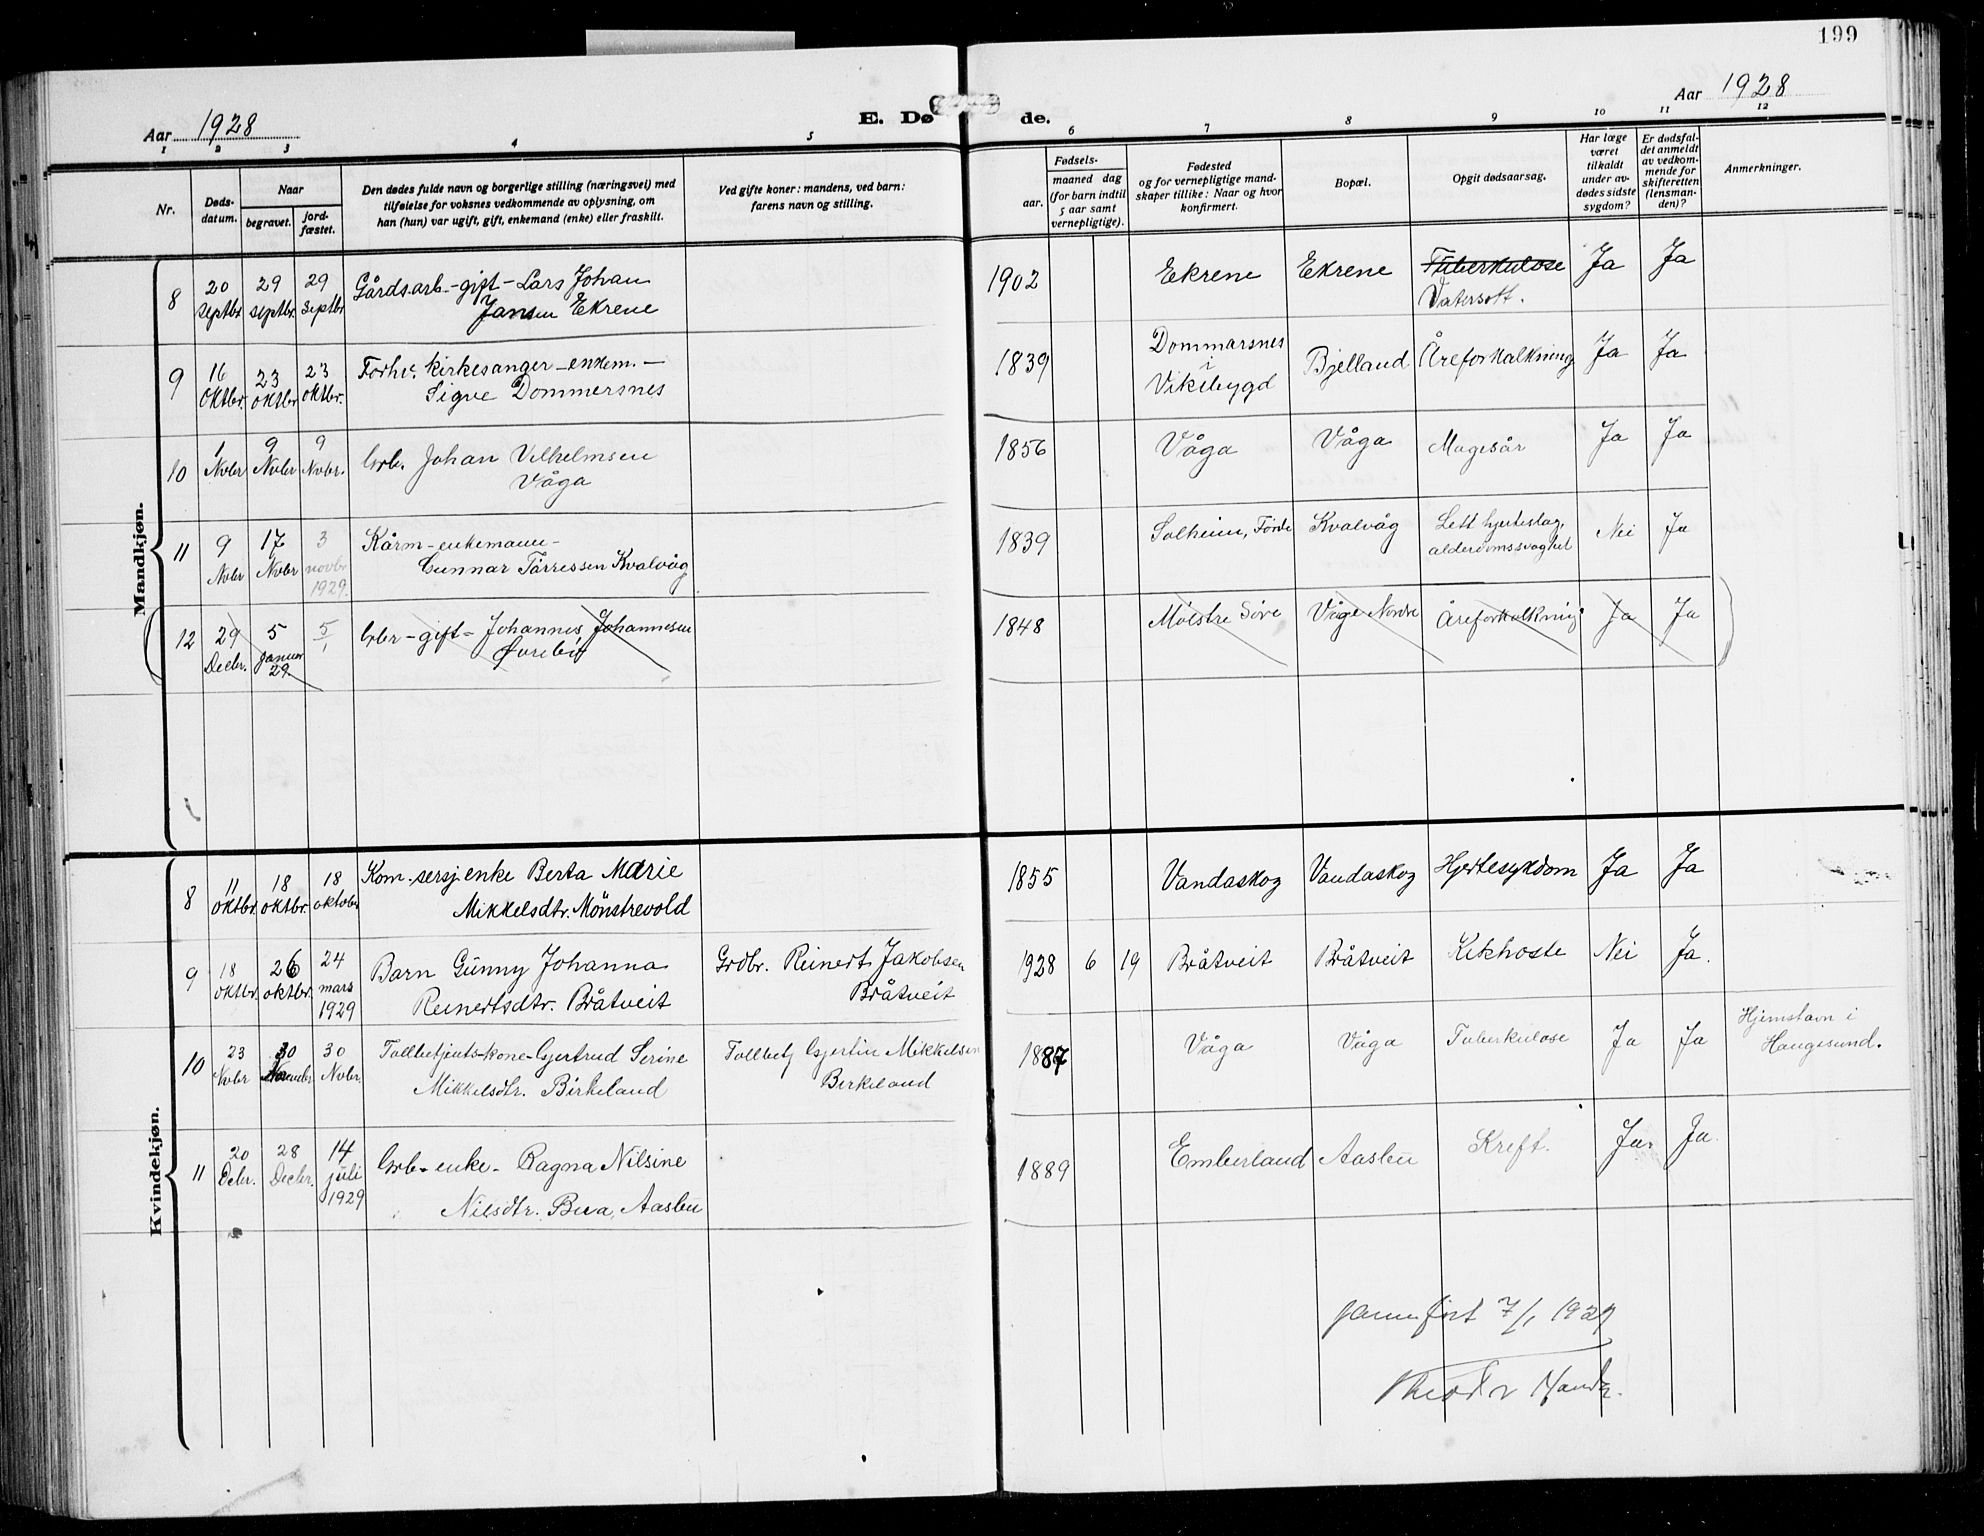 199
Aar 1928
E. Dø
de.
Aar 1928
1 2 3 4 5 6 7 8 9 10 11 12
Nr.
Døds-
datum.
Naar
begravet.
jord-
fæstet.
Den dødes fulde navn og borgerlige stilling (næringsvei) med
tilføielse for voksnes vedkommende av oplysning, om
han (hun) var ugift, gift, enkemand (enke) eller fraskilt.
Ved gifte koner: mandens, ved barn:
farens navn og stilling.
Fødsels-
aar.
maaned dag
(for barn indtil
5 aar samt
vernepligtige).
Fødested
og for vernepligtige mand-
skaper tillike: Naar og hvor
konfirmert.
Bopæl.
Opgit dødsaarsag.
Har læge
været
tilkaldt
under av-
dødes sidste
sygdom?
Er dødsfal-
det anmeldt
av vedkom-
mende for
skifteretten
(lensman-
den)?
Anmerkninger.
Mandkjøn.
8 20 Septbr 29 septbr. 29 Septbr Gårdsarb.-gift-Lars Johan
Jansen Ekrene
1902 Ekrene Ekrene Tuberkulose
Vatersott. Ja Ja
9 16 Oktbr. 23 oktbr 23 oktbr. Forhv. kirkesanger-enkem.-
Sigve Dommersnes
1839 Dommarsnes
i
Vikebygd Bjelland Åreforkalkning Ja Ja
10 1 Nvbr 9 Nvbr 9 Nvbr. Grb. Johan Vilhelmsen
Våga
1856 Våga Våga Magesår Ja Ja
11 9 Nvbr 17 Nvbr 3 novbr 1929. Kårm-enkemann-
Gunnar Tørressen Kvalvåg
1839 Solheim, Förde Kvalvåg Lett hjerteslag,
alderdomssvaghet Nei Ja
12 29 Decbr. 5 Januar 29. 5/1 Gbr-gift-Johannes Johannesen
1848 Mølstre Søre Våge Nordre Åreforkalkning Ja Ja
Kvindekjøn.
8 11 oktbr. 18 oktbr. 18 oktobr Kom.sersj.enke Berta Marie
Mikkelsdtr. Mönstrevold
1855 Vandaskog Vandaskog Hjertesykdom Ja Ja
9 18 oktbr. 26 oktbr. 24 mars 1929 Barn Gunny Johanna
Reinertsdtr. Bråtveit
Grdbr. Reinert Jakobsen
Bråtveit
1928 6 19 Bråtveit Bråtveit Kikhoste Nei Ja.
10 23 Nvbr 30 November 30 Nvbr Tollbetjents-kone-Gjertrud Serine
Mikkelsdtr. Birkeland
Tollbetj Gjertin Mikkelsen
Birkeland
1887 Våga Våga Tuberkulose Ja Ja Hjemstavn i
Haugesund.
11 20 Debr. 28 Decbr. 14 juli 1929 Grb-enke-Ragna Nilsine
Nilsdtr. Bua, Aasbu
1889 Emberland Aasbu Kreft. Ja. Ja.
Jamnført 7/1 1929